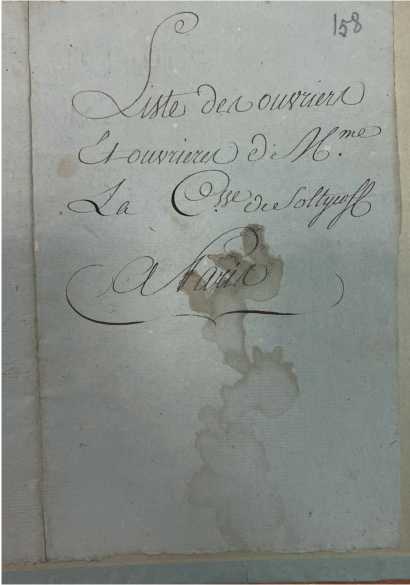 158
Liste des ouvriers
Et ouvrieres d'M.me
La C.sse de Soltyck
A Paris